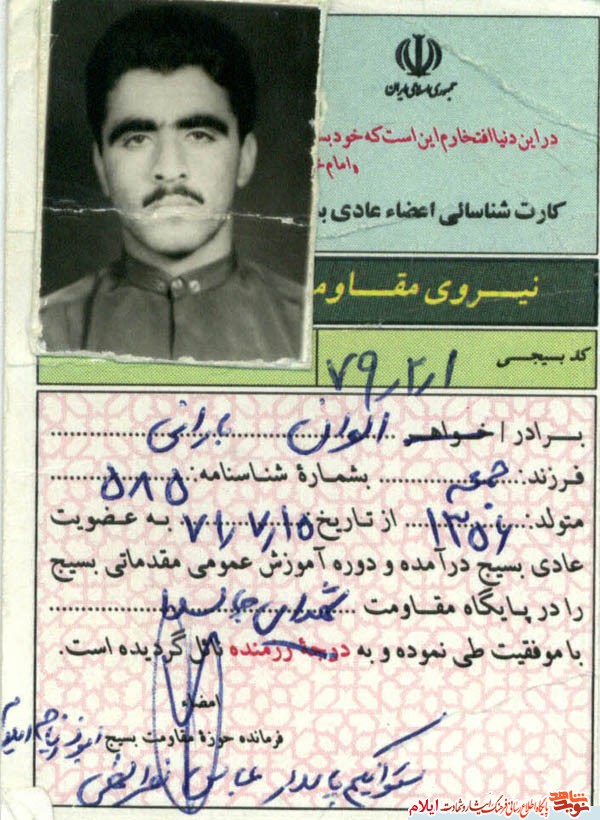 جمهوری اسلامی ایران
در این دنیا افتخارم این است که خود بس
و امام خ
کارت شناسائی اعضاء عادی ب
نیروی مقاوم
کد بسیجی
۷۹٫۲٫۱
برادر / خواهر الوان بارانی
فرزند: جمعه بشمارهٔ شناسنامه: ۵۸۵
متولد: ۱۳۵۶ از تاریخ: ۷۱٫۷٫۱۵ به عضویت
عادی بسیج درآمده و دوره آموزش عمومی مقدماتی بسیج
را در پایگاه مقاومت شهدای
با موفقیت طی نموده و به درجهٔ رزمنده نائل گردیده است.
امضاء
فرمانده حوزهٔ مقاومت بسیج
پاسدار عباس
شاهد نوید
پایگاه اطلاع رسانی فرهنگ ایثار و شهادت ایلام